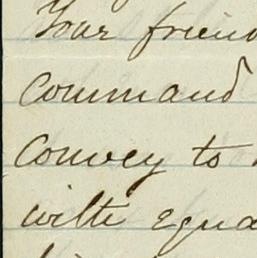 Your friend
Command
Convey to
with equa